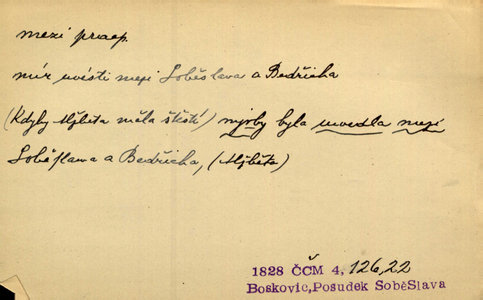 mezi praep.
mír uvésti mezi Soběslava a Bedřicha
(Kdyby Alžběta měla štěstí) mír by byla uvedla mezi
Soběslava a Bedřicha, (Alžběta)
1828 ČČM 4, 126,22
Boskovic,Posudek SoběSlava